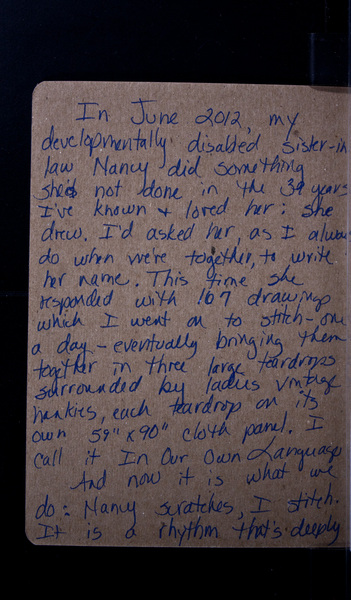 In June 2012, my
developmentally disabled sister-in
law Nancy did something
she'd not done in the 39 years
I've known + loved her: she
drew. I'd asked her, as I always
do when we're together, to write
her name. This time she
responded with 167 drawings
which I went on to stitch - one
a day - eventually bringing them
together in three large teardrops
surrounded by ladies vintage
hankies, each teardrop on its
own 59" x 90" cloth panel. I
call it In Our Own Language
And now it is what we
do: Nancy scratches, I stitch.
It is a rhythm that's deeply